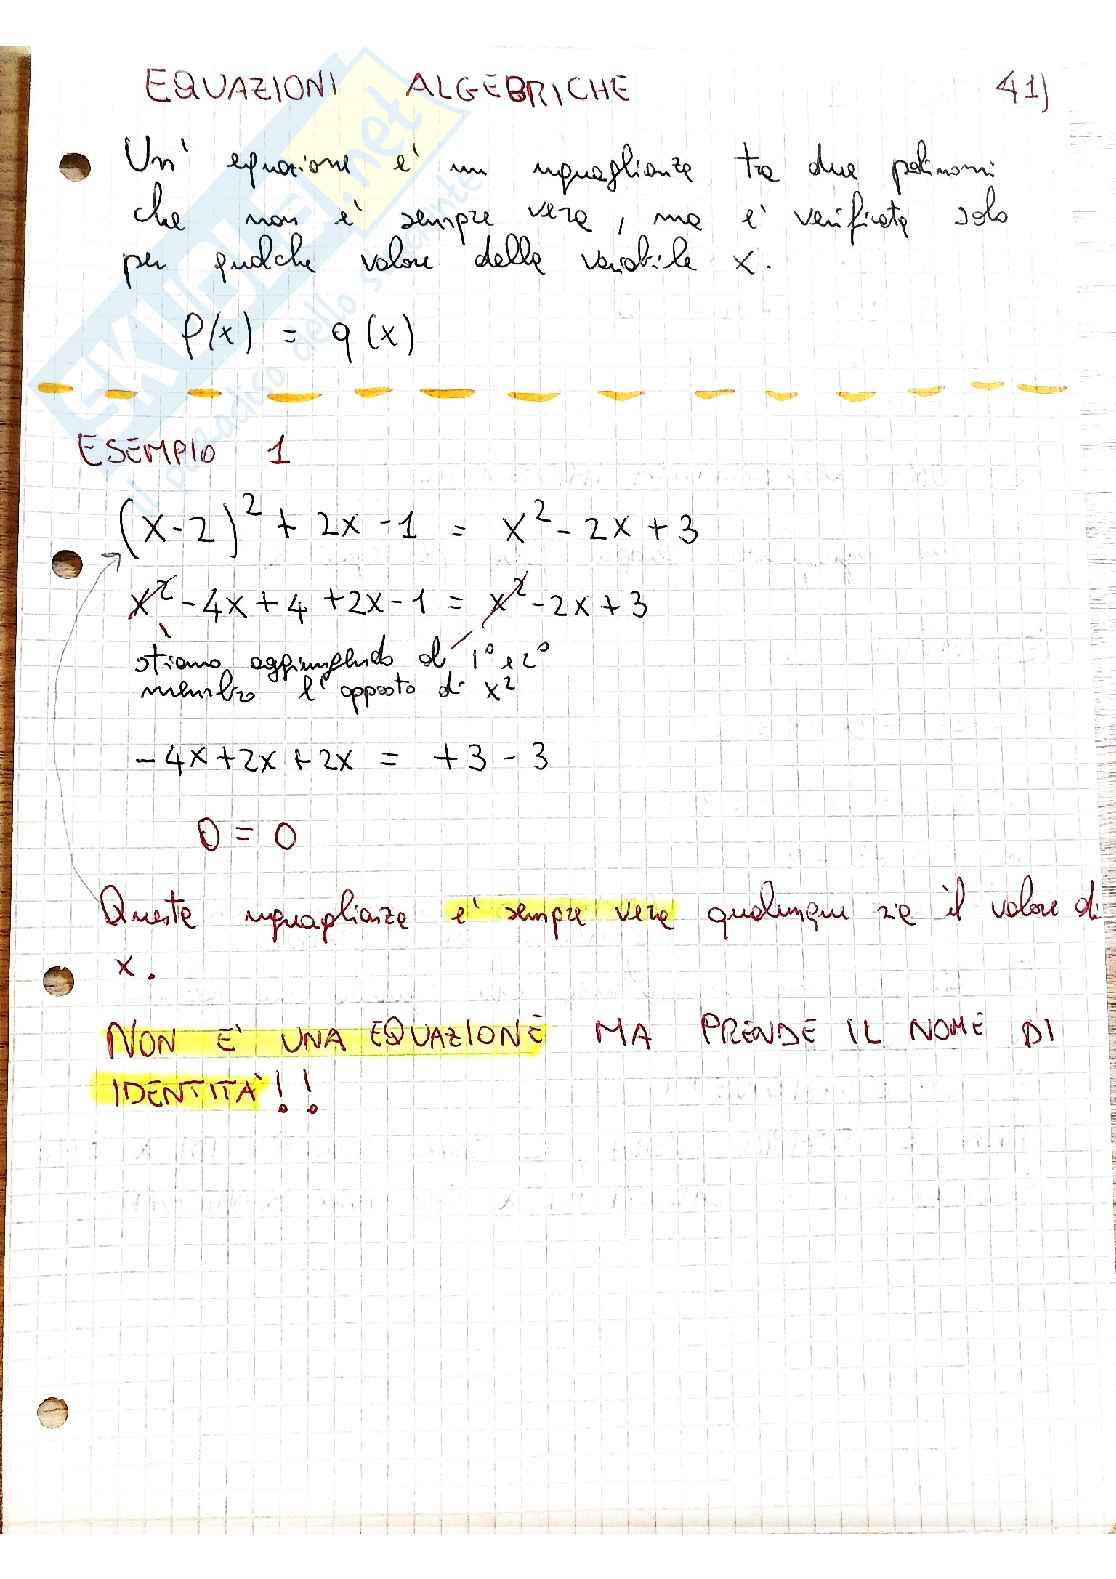 EQUAZIONI ALGEBRICHE 41)
Un' equazione e' un uguaglianza tra due polinomi
che non e' sempre vera, ma e' verificata solo
per qualche valore della variabile x.
p(x) = q(x)
ESEMPIO 1
(x-2)² + 2x -1 = x² - 2x + 3
x² - 4x + 4 + 2x - 1 = x² - 2x + 3
stiamo aggiungendo al 1° e 2°
membro l' opposto di x²
- 4x + 2x + 2x = + 3 - 3
0 = 0
Questa uguaglianza e' sempre vera qualunque sia il valore di
x.
NON E' UNA EQUAZIONE MA PRENDE IL NOME DI
IDENTITA'!!
SKUOLA.net
il paradiso dello studente